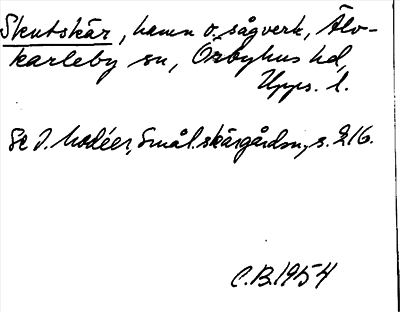 Skutskär, hamn o. sågverk, Älv-
karleby sn, Örbyhus hd,
Upps. l.
Se I. Modéer, Smål. skärgårdsn, s. 216.
C.B. 1954